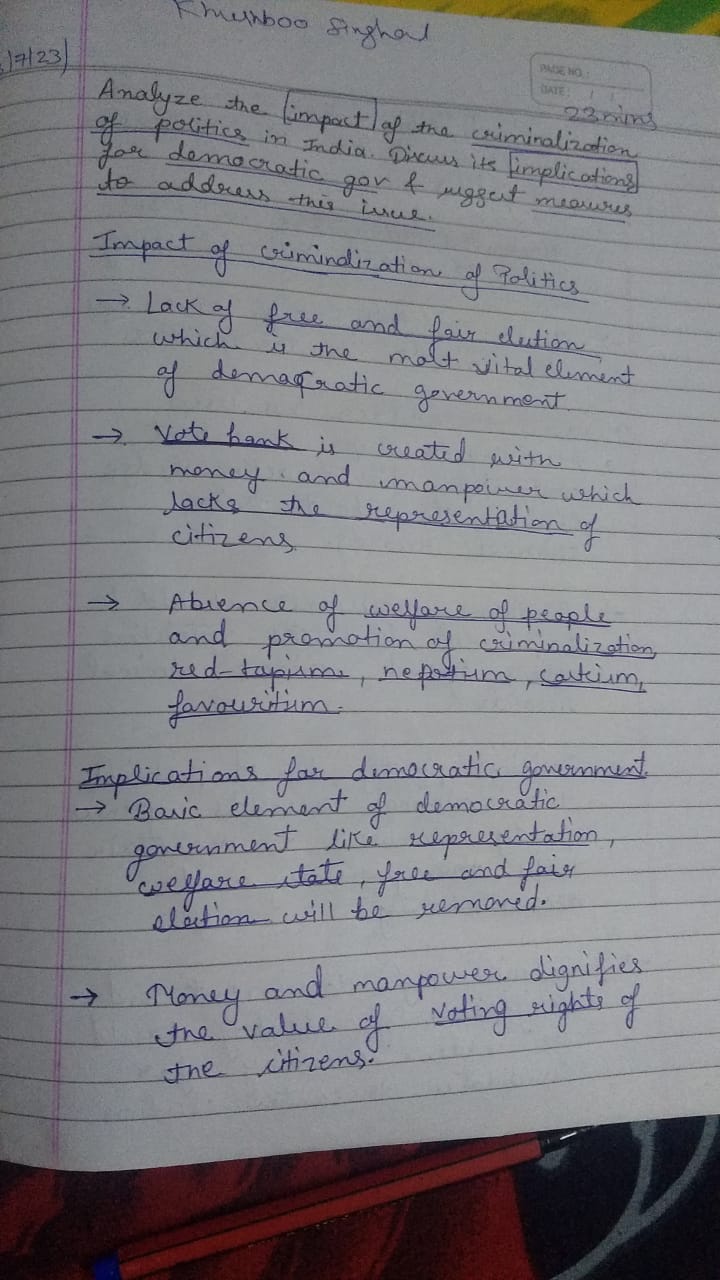 Khushboo Singhal
17/23)
PAGE NO.:
DATE: / /
23 mins
Analyze the impact of the criminalization
of politics in India. Discuss its implications
for democratic gov & suggest measures
to address this issue.
Impact of criminalization of Politics
→ Lack of free and fair elution
which is the most vital element
of democratic government
→ Vote bank is created with
money and manpower which
lacks the representation of
citizens
→ Absence of welfare of people
and promotion of criminalization,
red-tapism, nepotism, casteism,
favouritism.
Implications for democratic government.
→ Basic element of democratic
government like representation,
welfare state, free and fair
election will be removed.
→ Money and manpower dignifies
the value of voting rights of
the citizens.